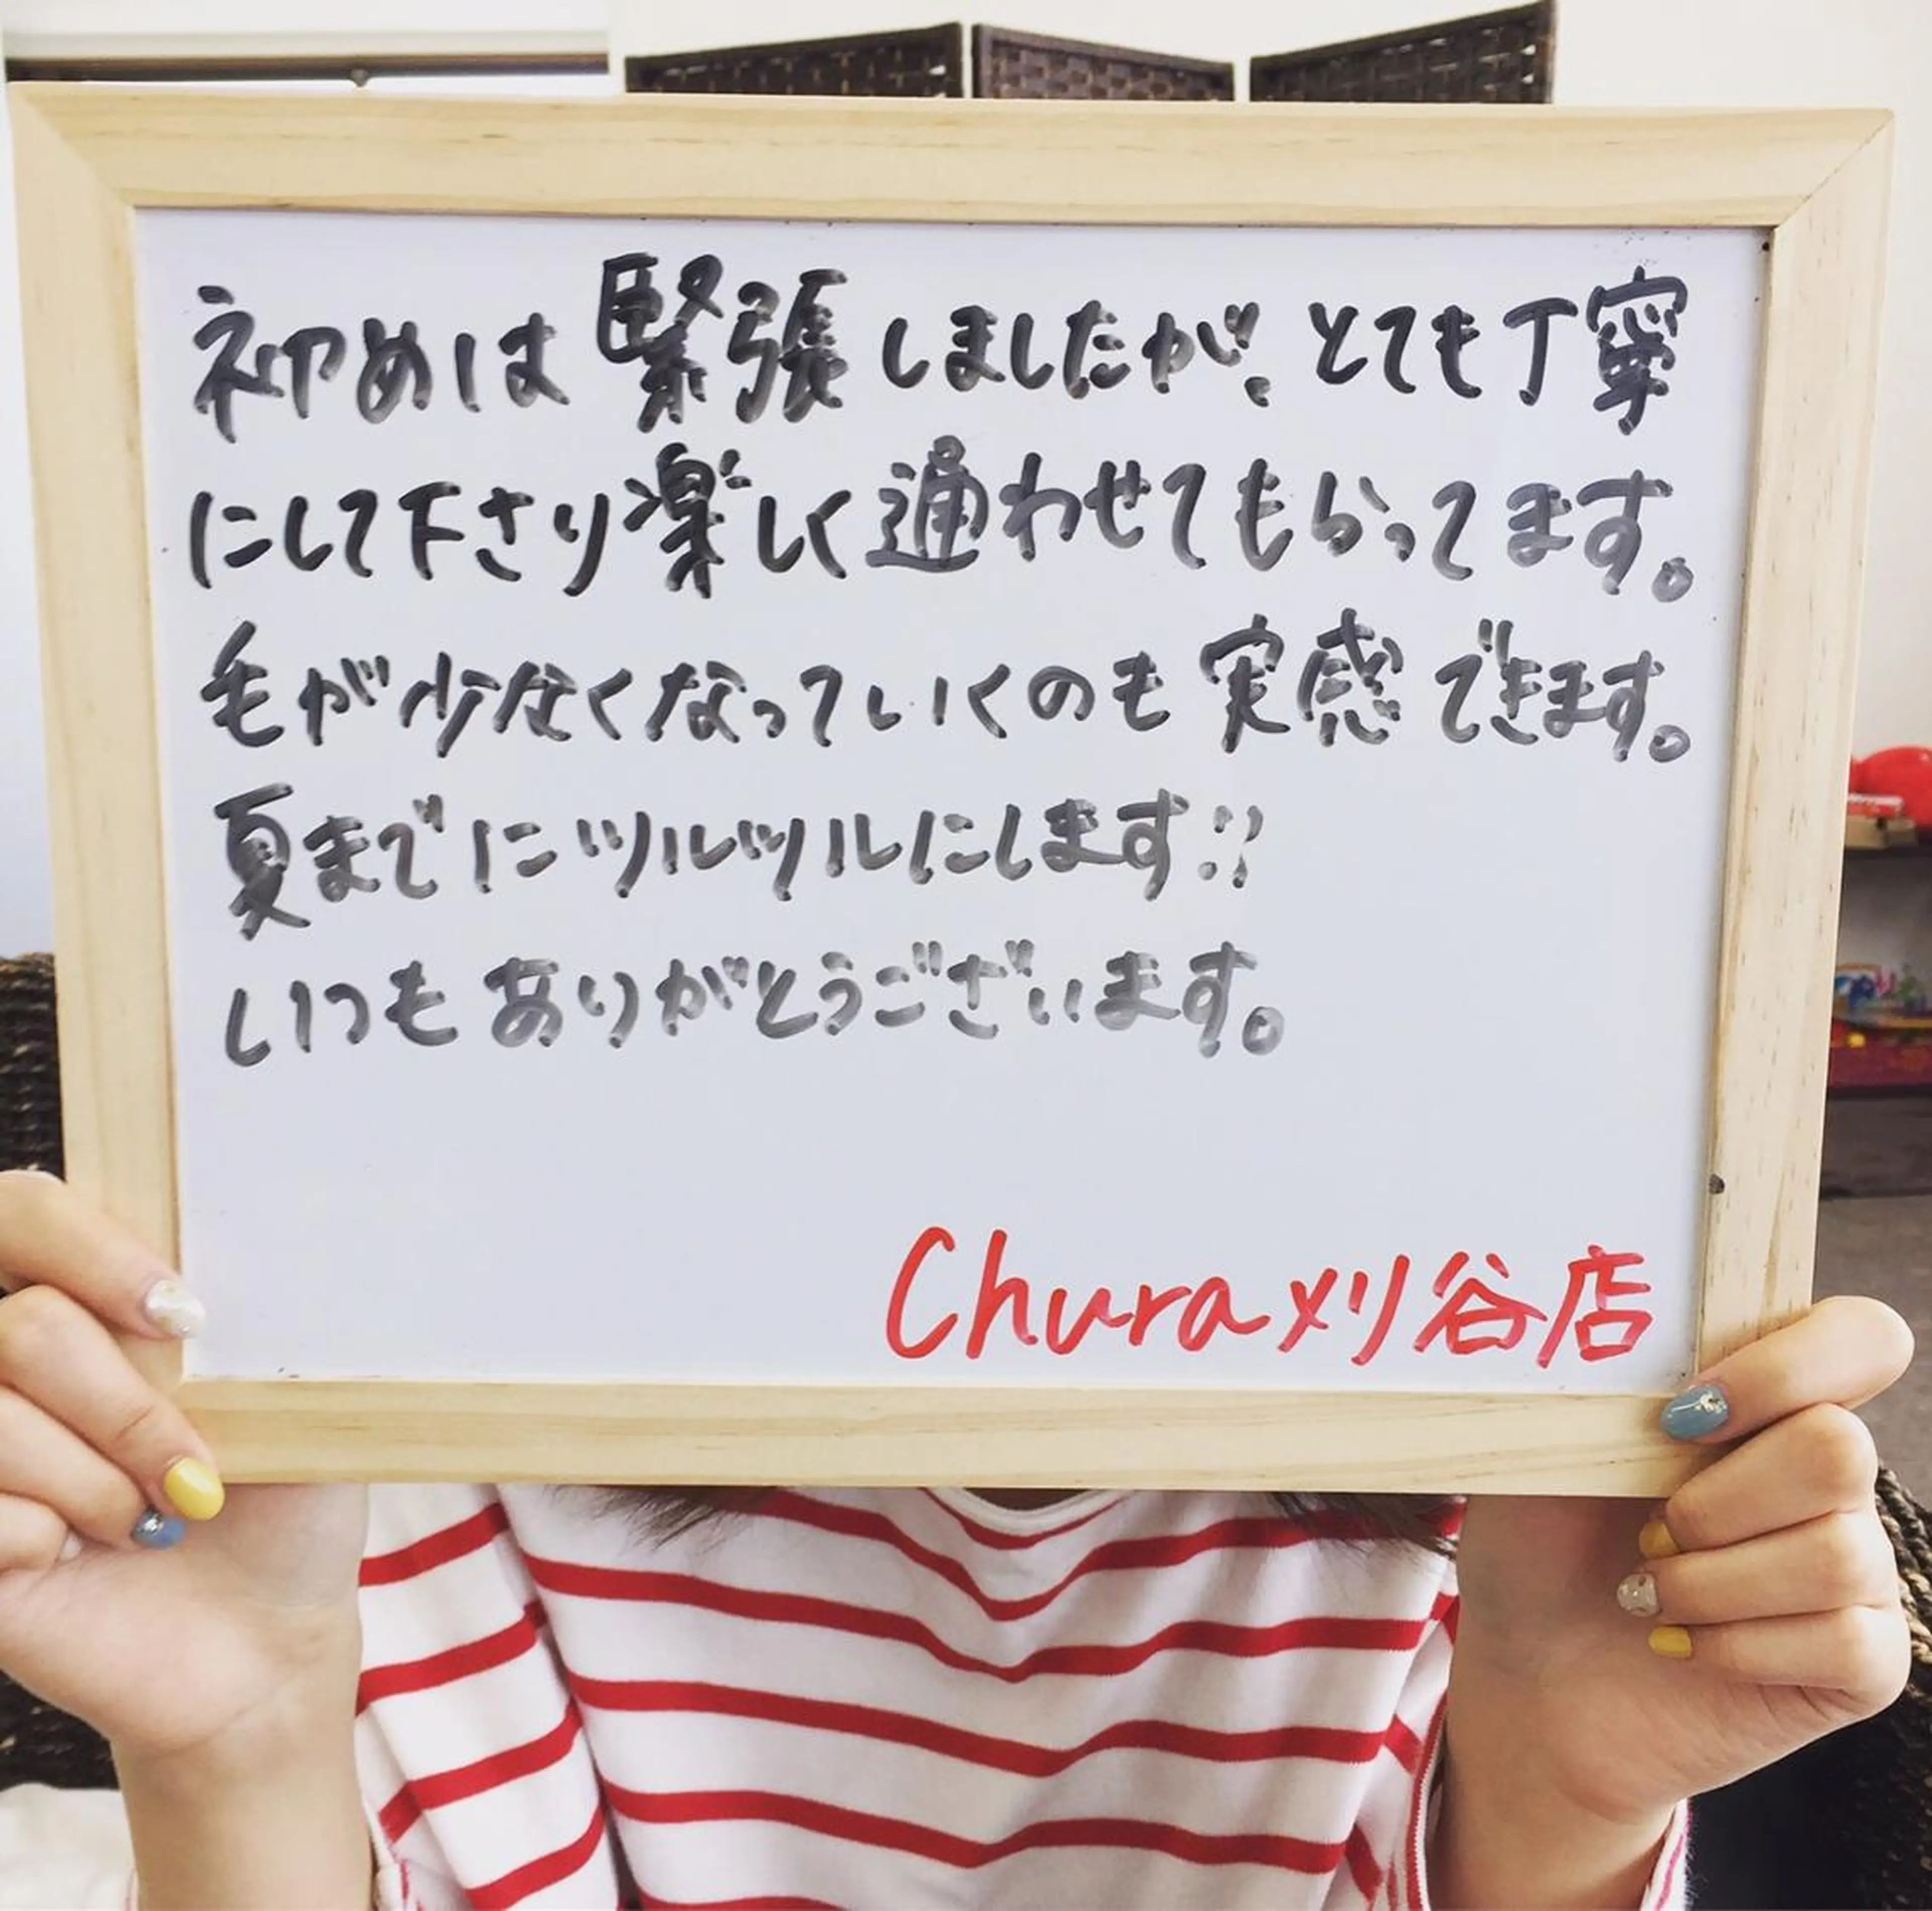 初めは緊張しましたが、とても丁寧
にして下さり楽しく通わせてもらってます。
毛が少なくなっていくのも実感できます。
夏までにツルツルにします!!
いつもありがとうございます。
Chura刈谷店